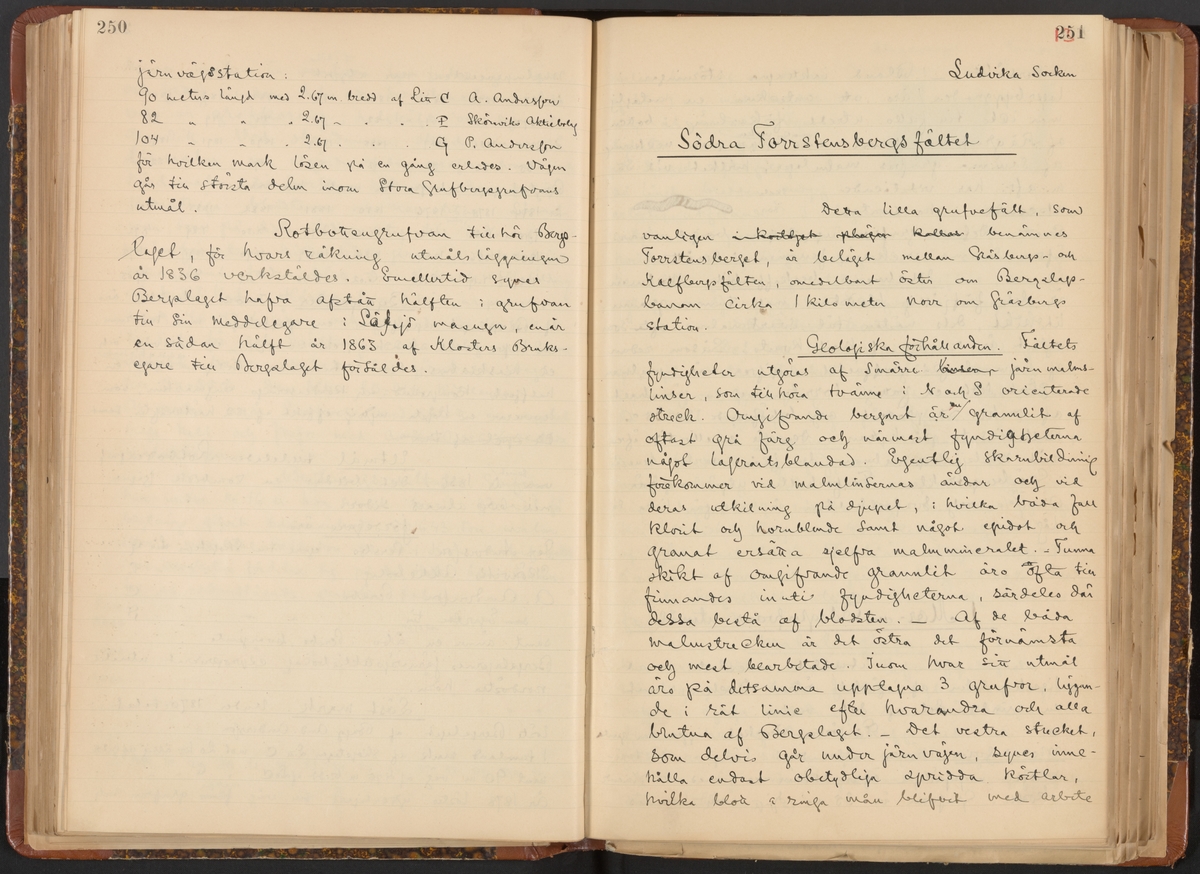 250
järnvägsstation:
90 meters längd med 2.67 m bredd af Litt C A. Andersson
82 " " " 2.67 " . . . E Skönviks Aktiebolag
104 " . 2.67 . . . G P. Andersson
för hvilken mark lösen på en gång erlades. Vägen
går till största delen inom Stora Grufbergsgrufvans
utmål.
Rotbottengrufvan tillhör Bergs-
laget, för hvars räkning utmålsläggningen
år 1836 verkställdes. Emellertid synes
Bergslaget hafva afstått hälften i grufvan
till sin meddelegare i masugn, enär
en sådan hälft år 1863 af Klosters Bruks-
egare till Bergslaget försåldes.
251
Ludvika Socken
Södra Torrstensbergsfältet
Detta lilla grufvefält, som
vanligen benämnes
Torrstensberget, är beläget mellan Gräsbergs- och
Kalfbergsfälten, omedelbart öster om Bergslags-
banan cirka 1 kilometer norr om Gräsbergs
station.
Geologiska förhållanden. Fältets
fyndigheter utgöras af smärre linser, järnmalms-
linser, som tillhöra tvänne i N och S orienterade
streck. Omgifvande bergart är en granulit af
oftast grå färg och närmast fyndigheterna
något lagerartsblandad. Egentlig skarnbildning
förekommer vid malmlinsernas ändar och vid
deras utkilning på djupet, i hvilka båda fall
klorit och hornblende samt något epidot och
granat ersätta sjelfva malmmineralet. - Tunna
skikt af omgifvande granulit äro ofta till
finnandes inuti fyndigheterna, särdeles där
dessa bestå af blodsten. - Af de båda
malmstrecken är det östra det förnämsta
och mest bearbetade. Inom hvar sitt utmål
äro på detsamma upptagna 3 grufvor, liggan-
de i rät linie efter hvarandra och alla
brutna af Bergslaget. - Det vestra strecket,
som delvis går under järnvägen, synes inne-
hålla endast obetydliga spridda körtlar,
hvilka blott i ringa mån blifvit med arbete